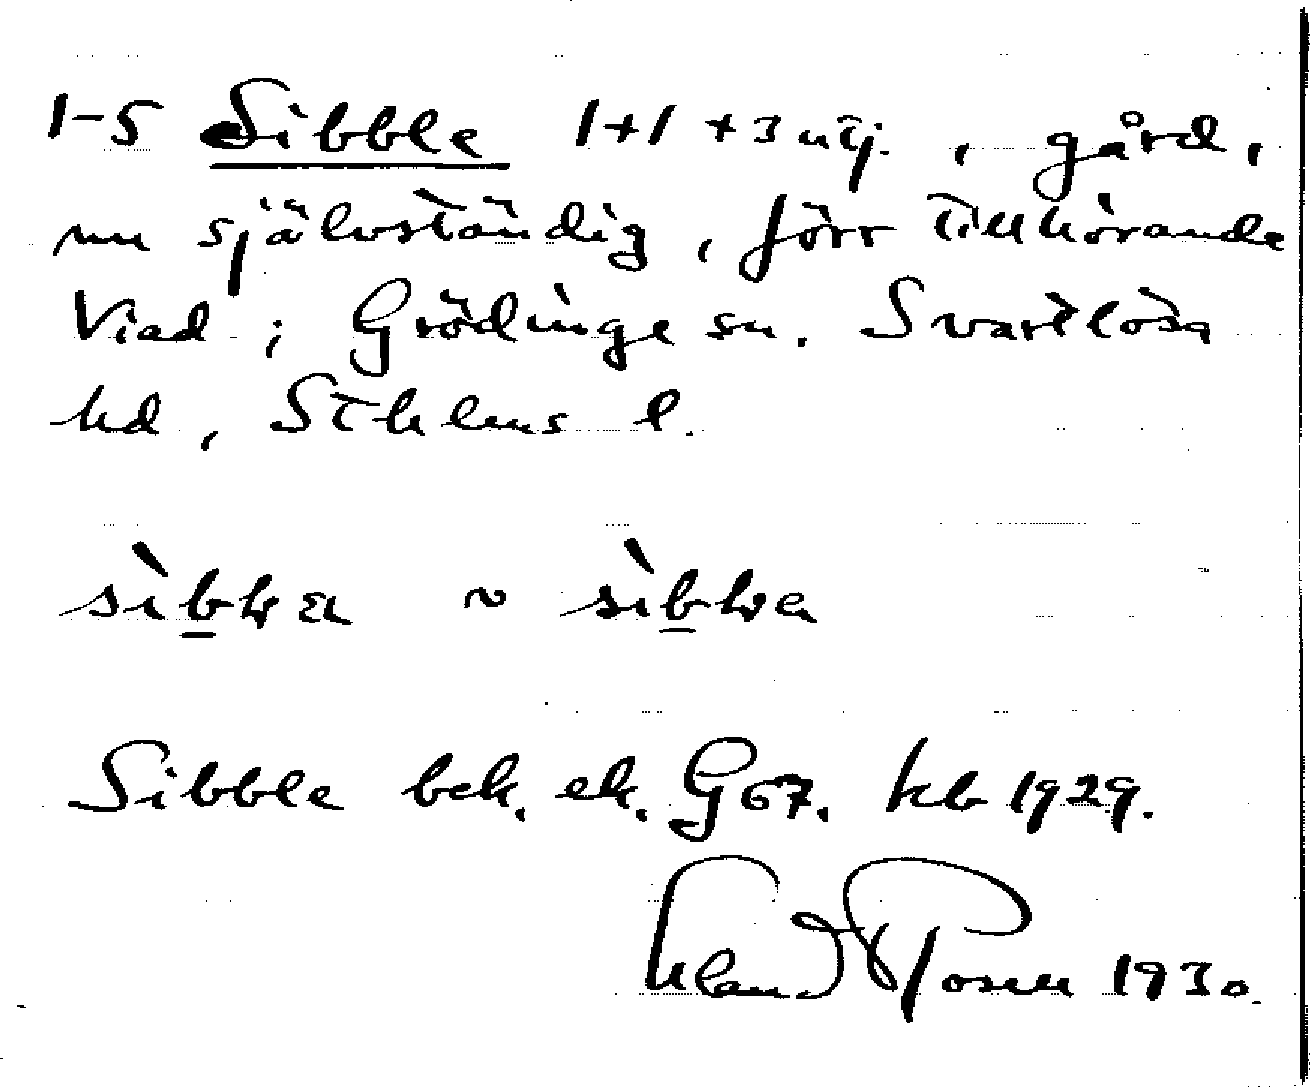 1-5 Sibble 1+1+3 utj., gård,
nu självständig, förr tillhörande
Viad; Grödinge sn. Svartlösa
hd, Sthlms l.
Sibble bek. ek. G 67. kb 1929.
Rosell 1930